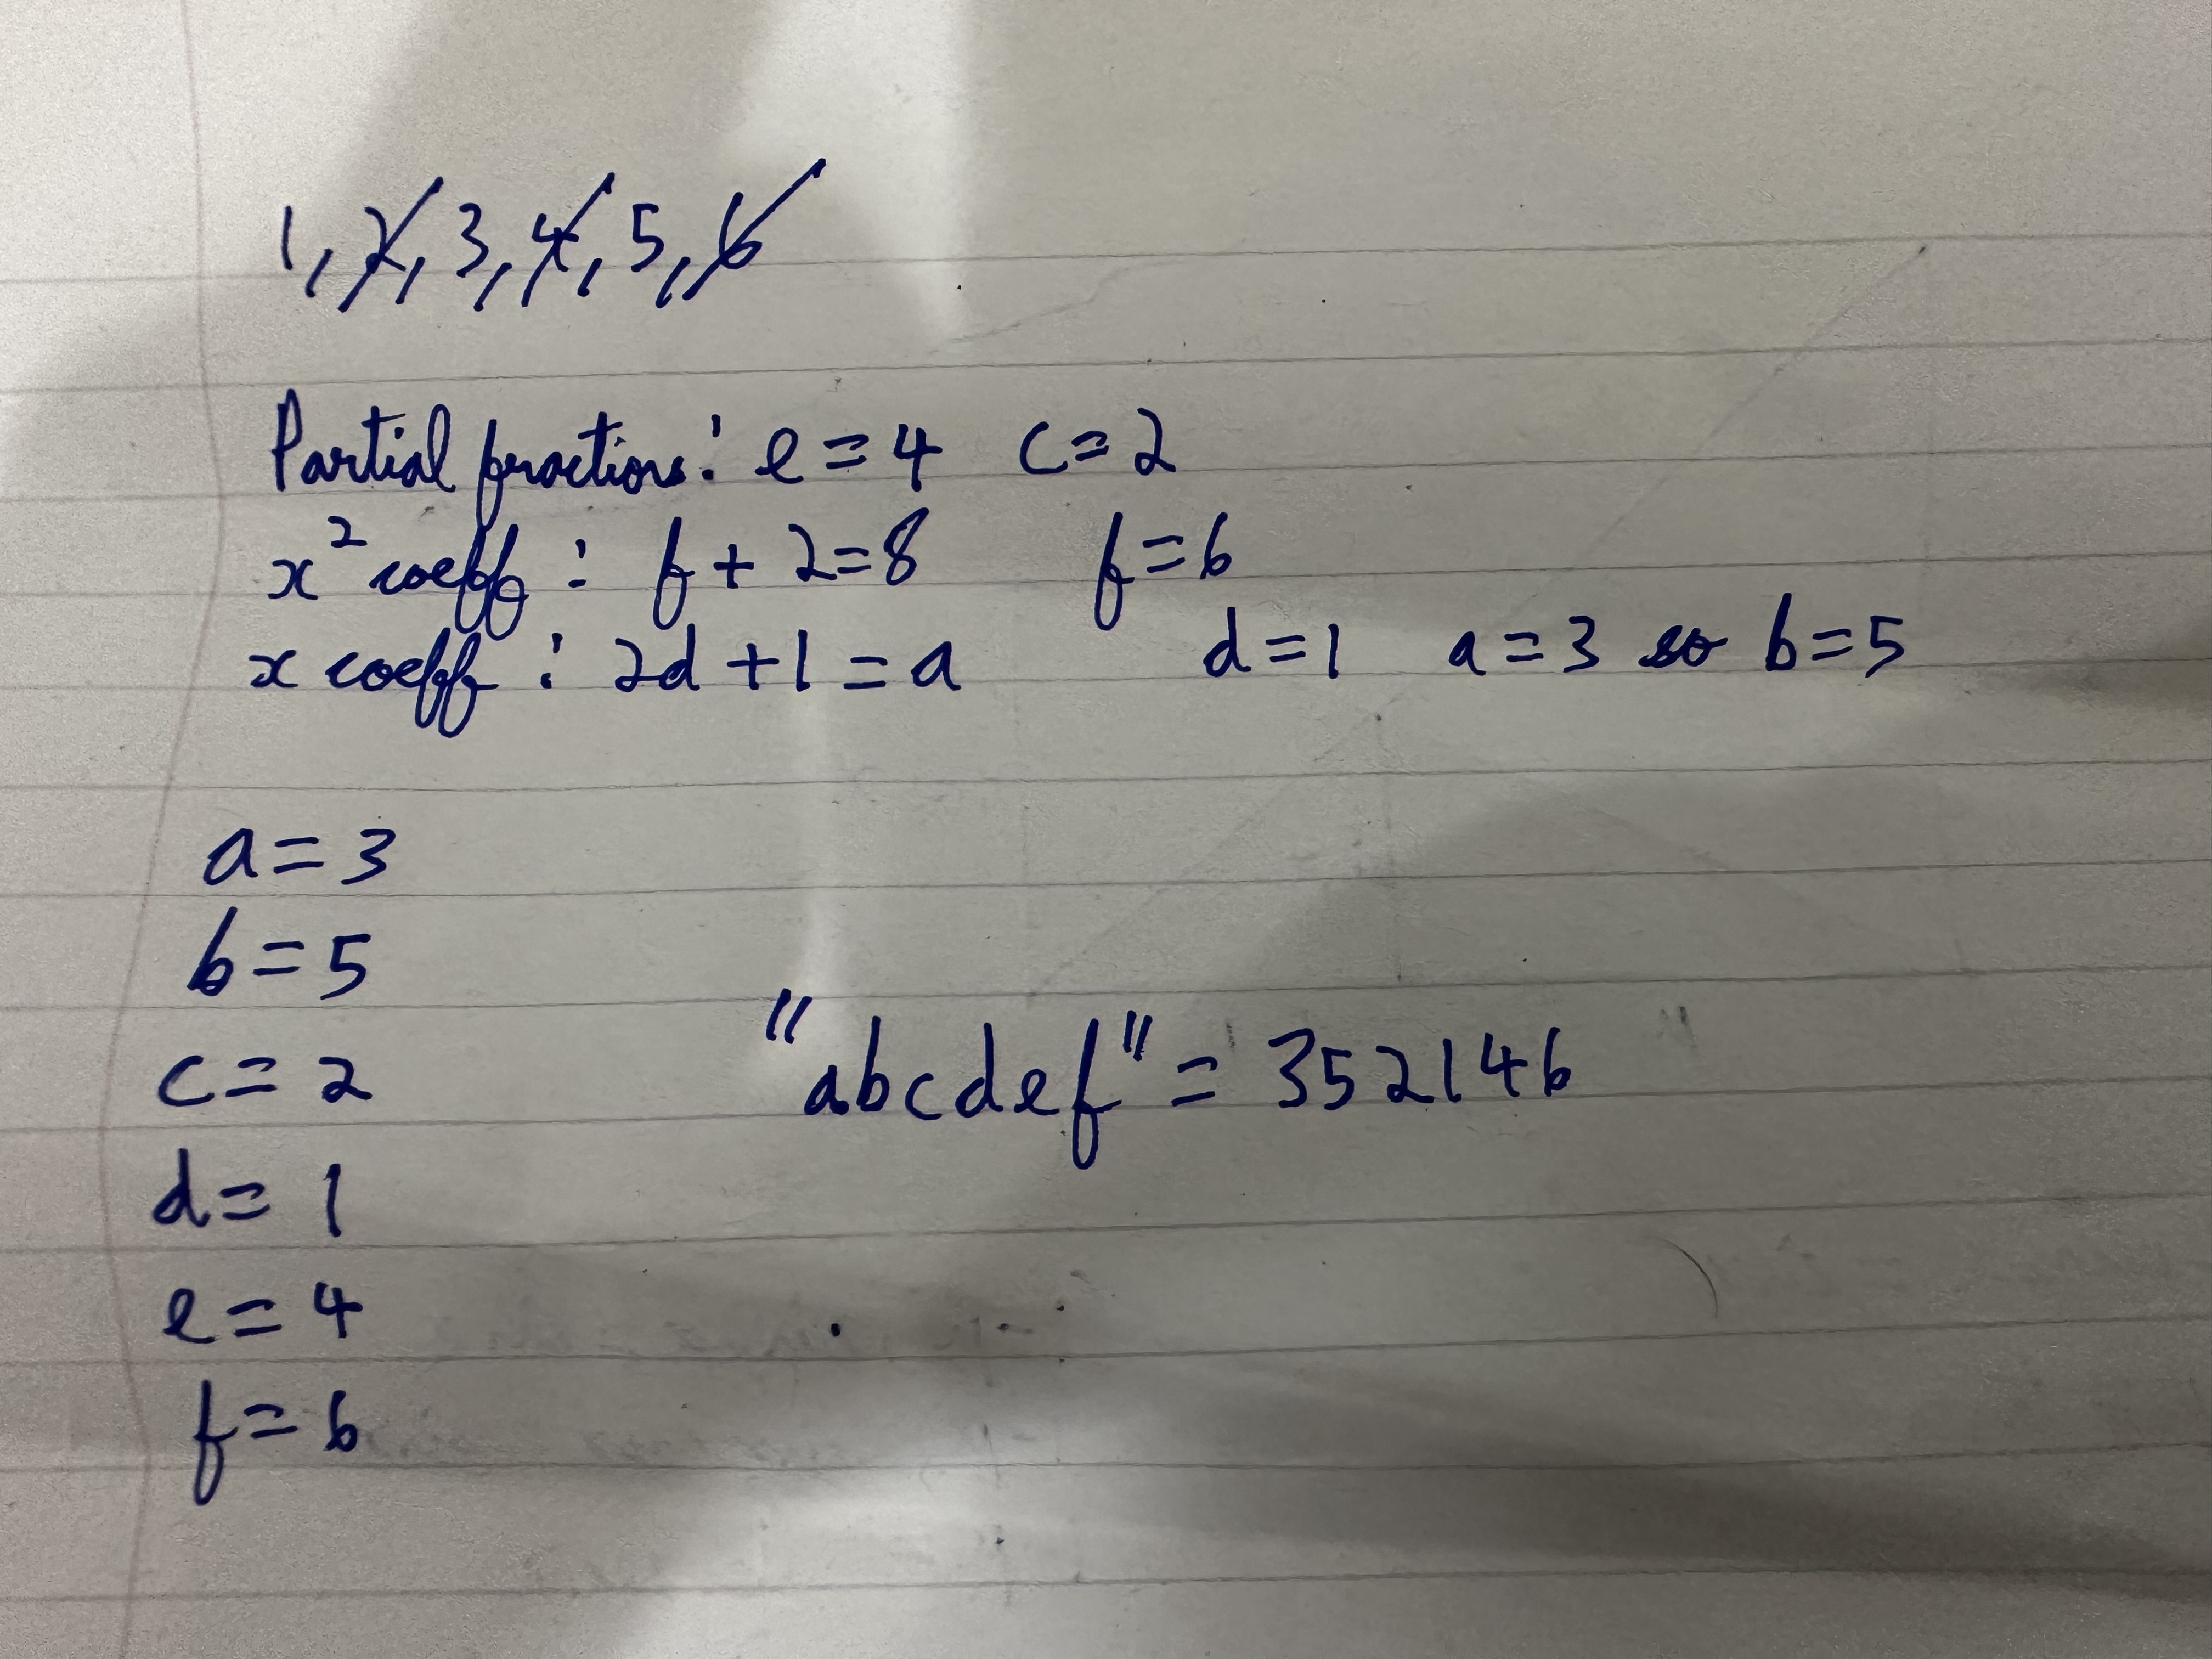 1, 2, 3, 4, 5, 6
Partial fractions: e = 4 c = 2
x² coeff : f + 2 = 8 f = 6
x coeff : 2d + 1 = a d = 1 a = 3 so b = 5
a = 3
b = 5
c = 2
"abcdef" = 352146
d = 1
e = 4
f = 6